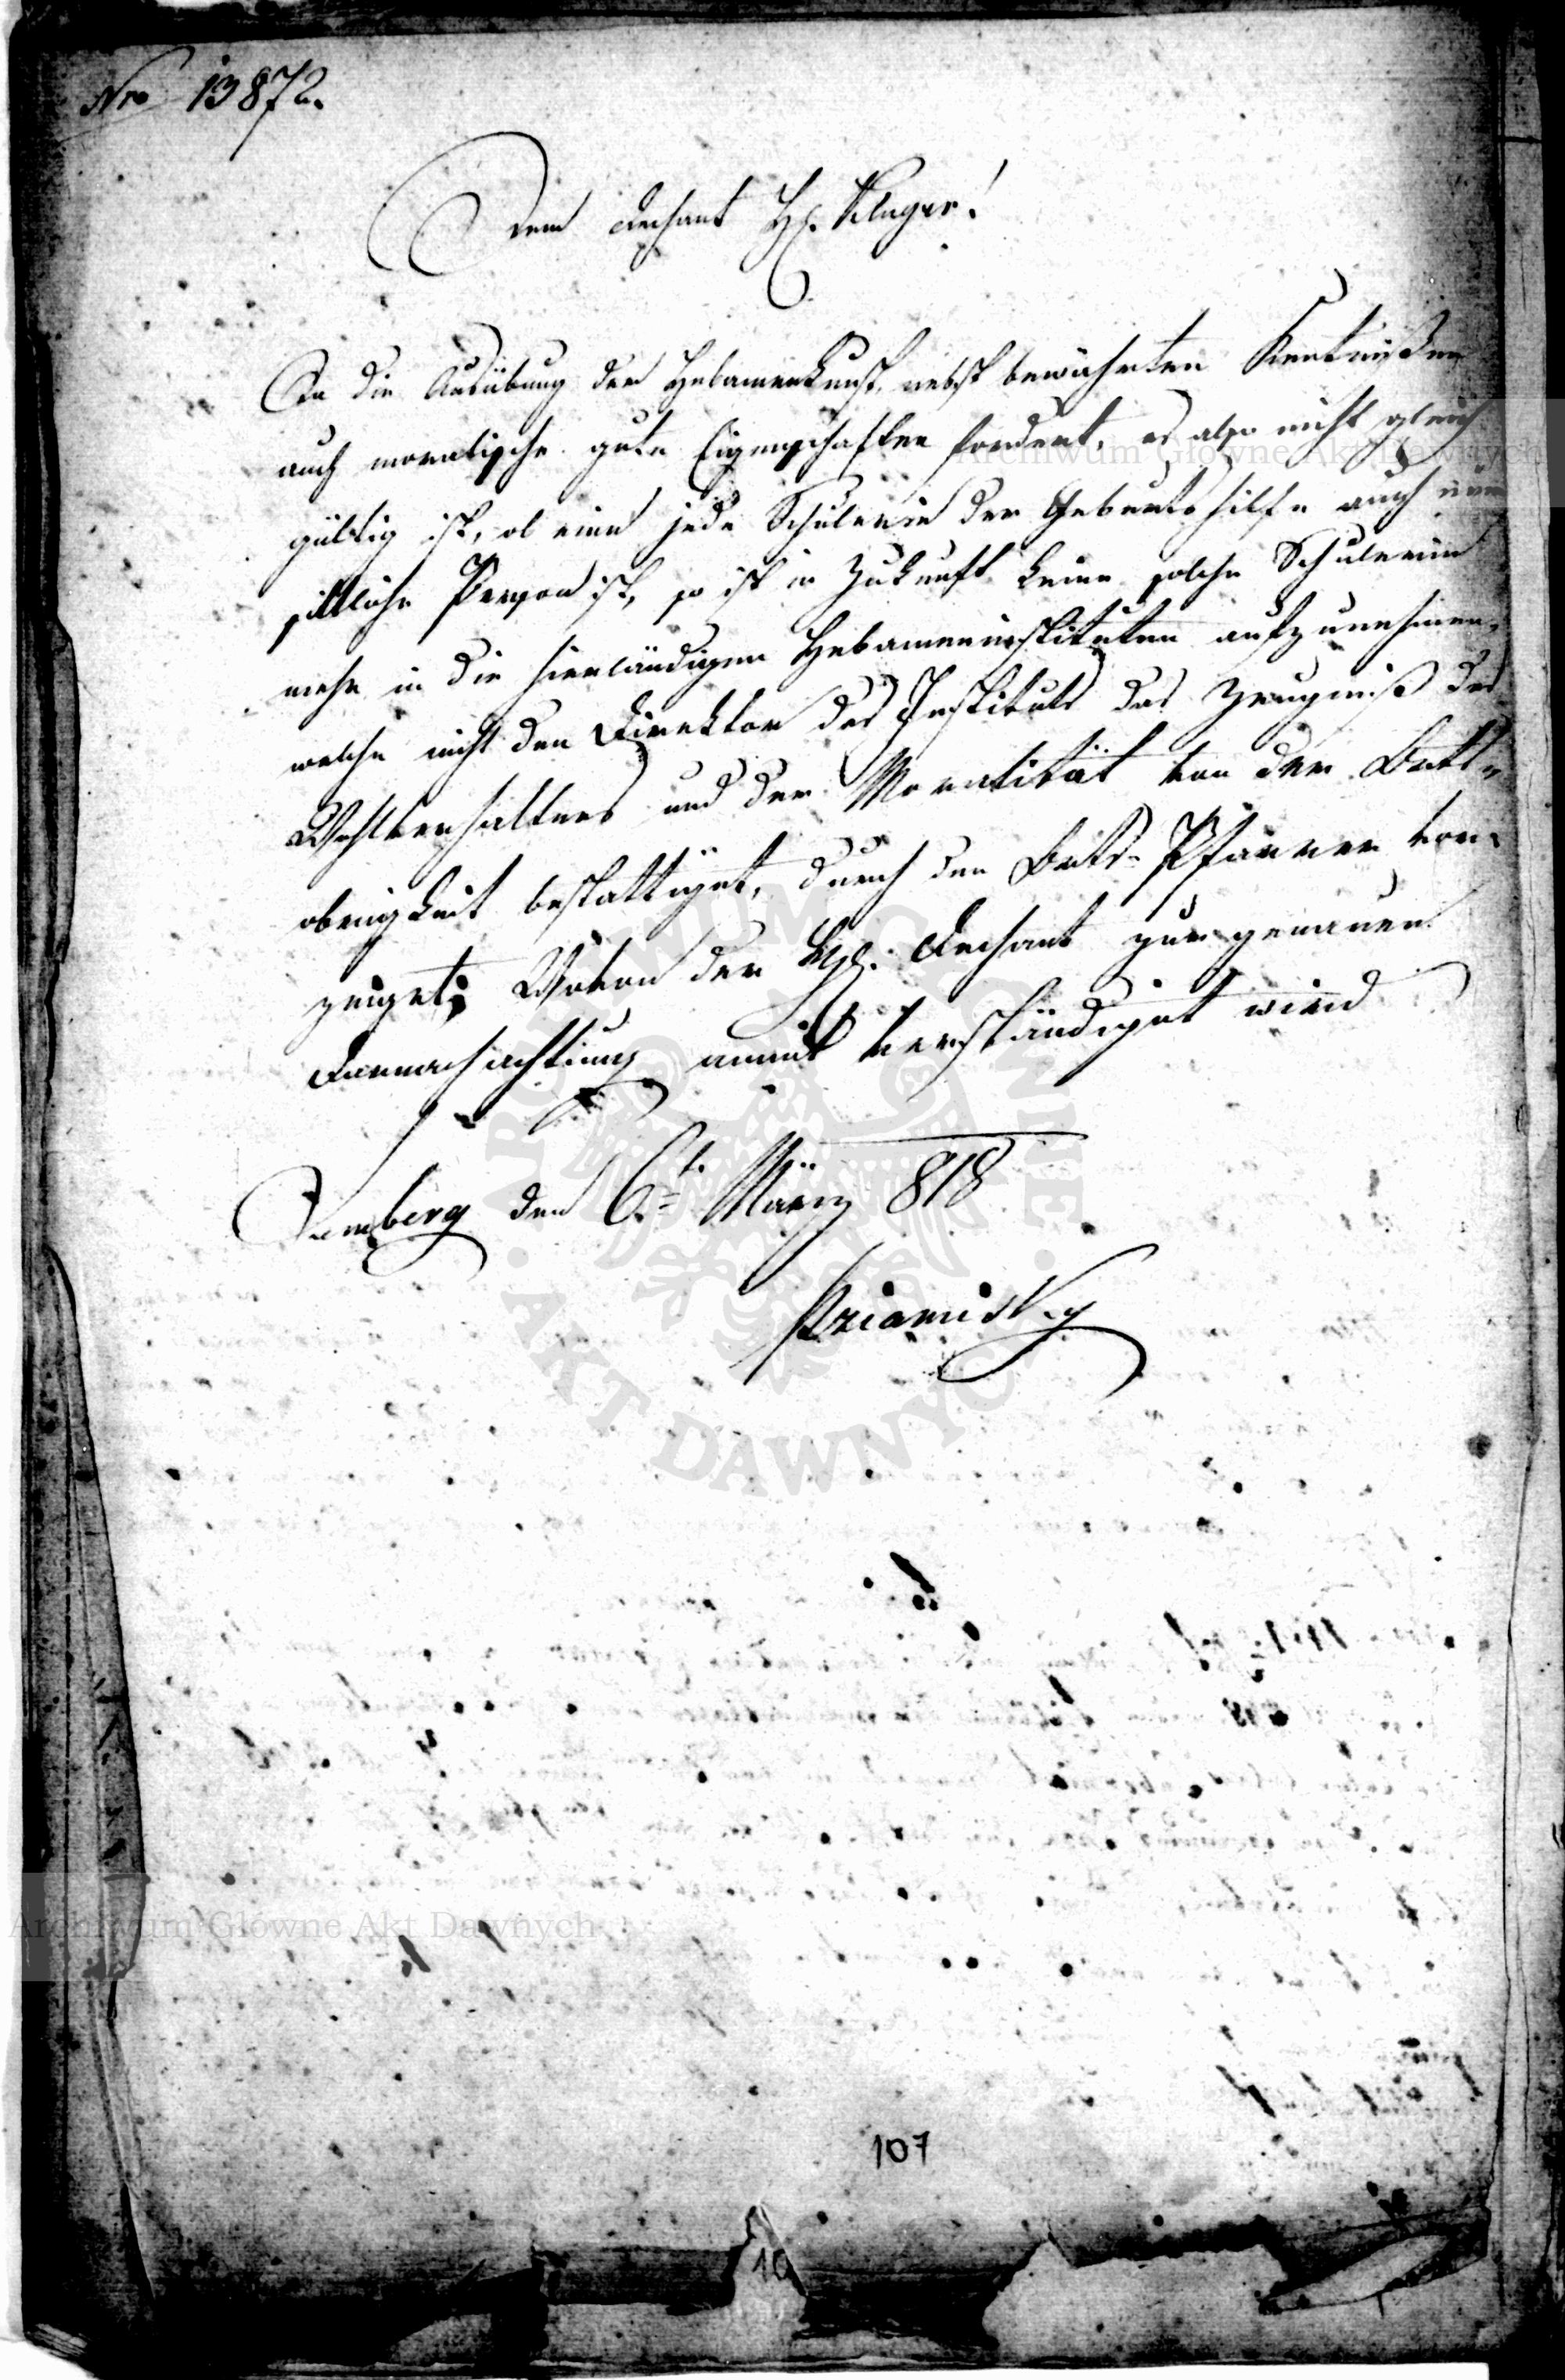 Nro 13872.
Dem Dechant H. Kluger!
Da die Ausübung der Hebamenkunst, nebst bewährten Kentnißen
auch moralische gute Eigenschaften fordert, es also nicht gleich
gültig ist, ob eine jede Schulerin der Geburtshilfe auch eine
sittliche Person ist, so ist in Zukunft keine solche Schulerin
mehr in die hierländigen Hebameninstituten aufzunehmen,
welche nicht den Direktor des Instituts das Zeugniß des
Wohlverhaltens und der Moralität von der Orts-
obrigkeit bestattiget, durch den Orts-Pfarrer vor-
zeiget; Wovon der H. Dechant zur genauen
Darnachachtung anmit verständiget wird
Lemberg den 6t. März 818
107
10
Archiwum Główne Akt Dawnych
Archiwum Główne Akt Dawnych
ARCHIWUM GŁÓWNE · AKT DAWNYCH ·